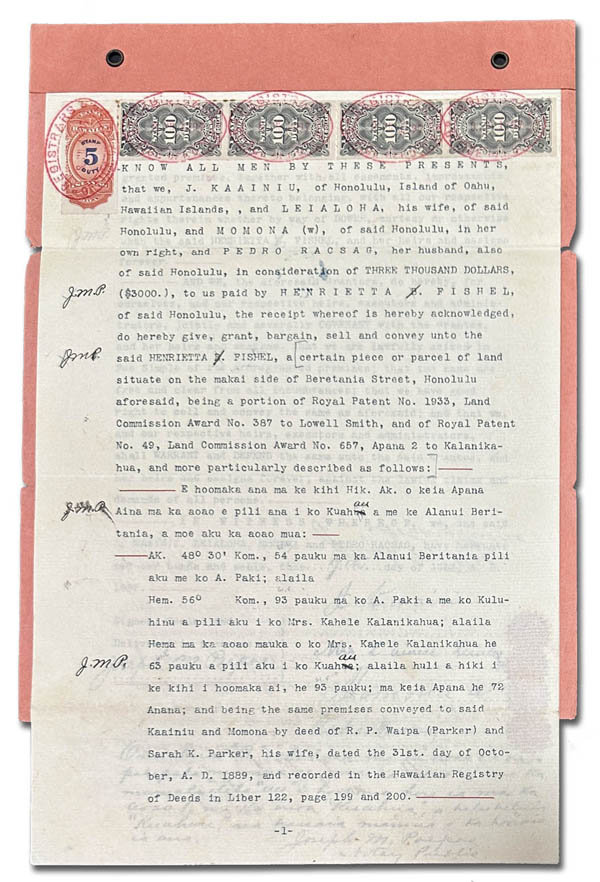 REGISTRAR
HAWAIIAN
STAMP
5
DUTY
STAMP 100 DUTY
STAMP 100 DUTY
STAMP 100 DUTY
STAMP 100 DUTY
KNOW ALL MEN BY THESE PRESENTS,
that we, J. KAAINIU, of Honolulu, Island of Oahu,
Hawaiian Islands, , and LEIALOHA, his wife, of said
Honolulu, and MOMONA (w), of said Honolulu, in her
own right, and PEDRO RACSAG, her husband, also
of said Honolulu, in consideration of THREE THOUSAND DOLLARS,
J.M.P. ($3000.), to us paid by HENRIETTA B. FISHEL,
of said Honolulu, the receipt whereof is hereby acknowledged,
do hereby give, grant, bargain, sell and convey unto the
J.M.P. said HENRIETTA B. FISHEL, a [certain piece or parcel of land
situate on the makai side of Beretania Street, Honolulu
aforesaid, being a portion of Royal Patent No. 1933, Land
Commission Award No. 387 to Lowell Smith, and of Royal Patent
No. 49, Land Commission Award No. 657, Apana 2 to Kalanika-
hua, and more particularly described as follows:]
E hoomaka ana ma ke kihi Hik. Ak. o keia Apana
J.M.P. Aina ma ka aoao e pili ana i ko Kuahau a me ke Alanui Beri-
tania, a moe aku ka aoao mua:
AK. 48º 30' Kom., 54 pauku ma ka Alanui Beritania pili
aku me ko A. Paki; alaila
Hem. 56º Kom., 93 pauku ma ko A. Paki a me ko Kulu-
hinu a pili aku i ko Mrs. Kahele Kalanikahua; alaila
Hema ma ka aoao mauka o ko Mrs. Kahele Kalanikahua he
J.M.P. 63 pauku a pili aku i ko Kuahau; alaila huli a hiki i
ke kihi i hoomaka ai, he 93 pauku; ma keia Apana he 72
Anana; and being the same premises conveyed to said
Kaainiu and Momona by deed of R. P. Waipa (Parker) and
Sarah K. Parker, his wife, dated the 31st. day of Octo-
ber, A. D. 1889, and recorded in the Hawaiian Registry
of Deeds in Liber 122, page 199 and 200.
-1-
Joseph M.
Notary Public